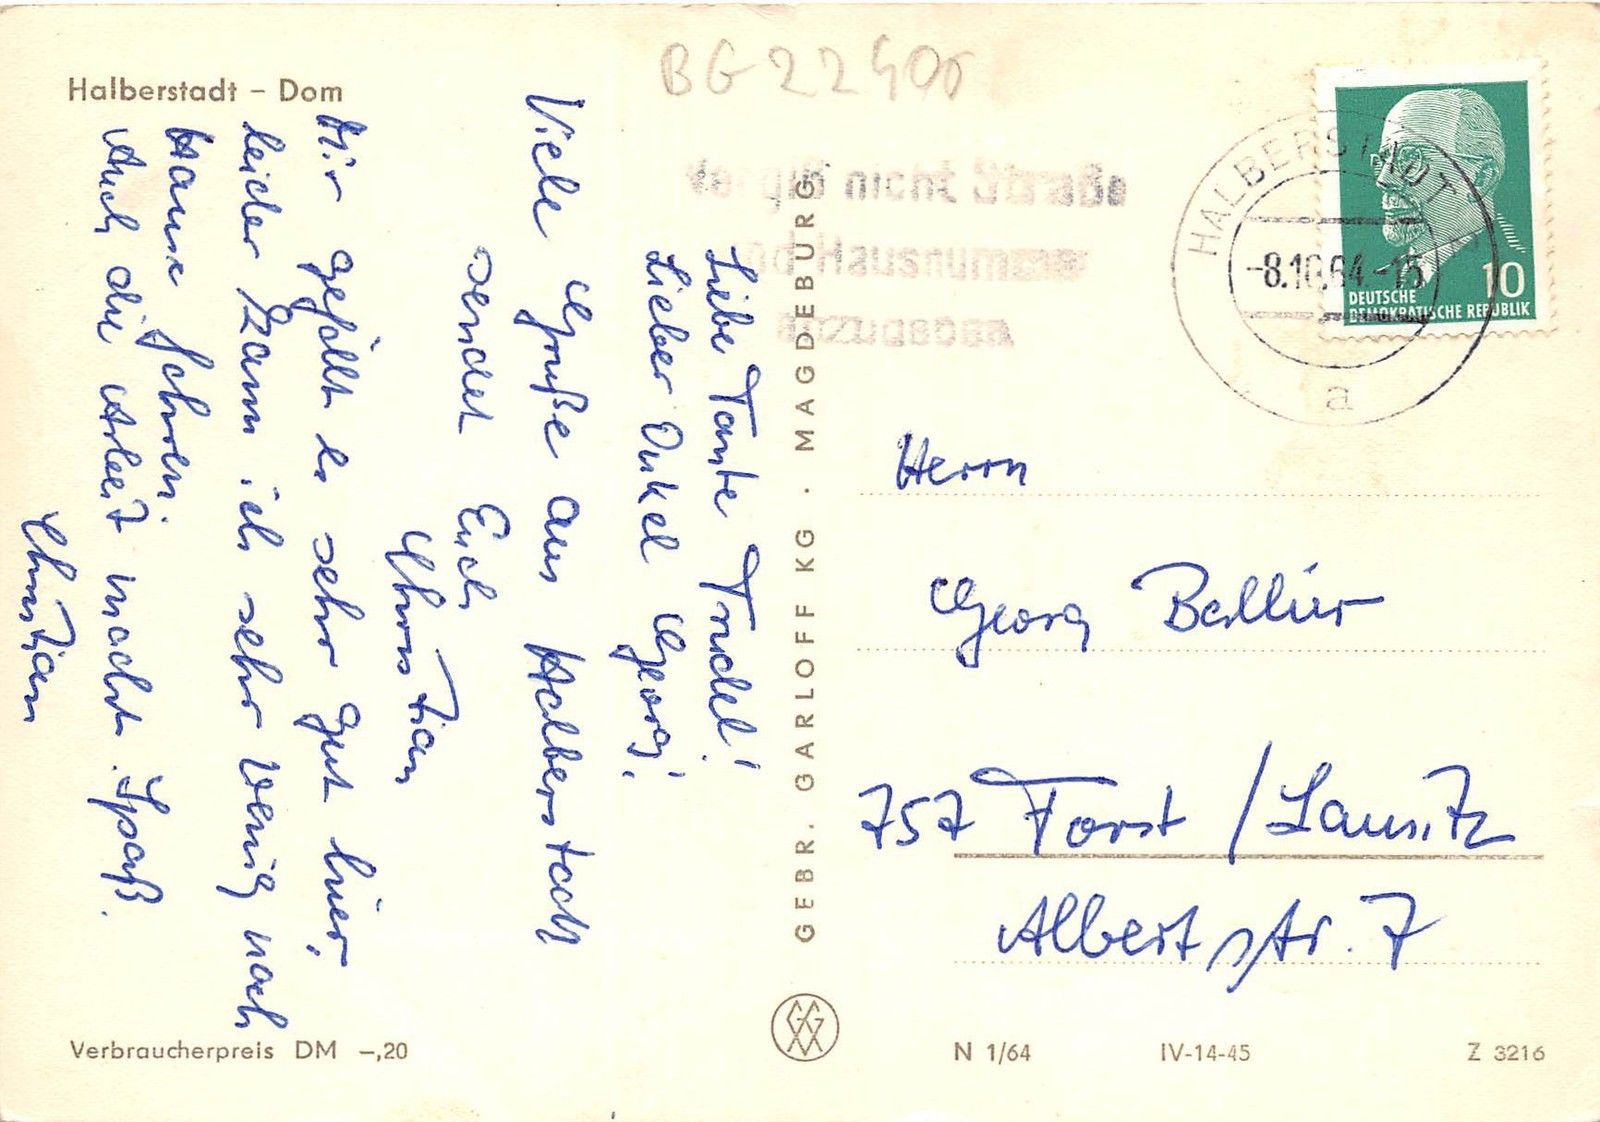 Halberstadt – Dom
BG 22400
Vergiß nicht Straße
und Hausnummer
anzugeben
HALBERSTADT
-8.10.64.-15
a
10
DEUTSCHE
DEMOKRATISCHE REPUBLIK
Liebe Tante Trudel!
Lieber Onkel Georg!
Viele Grüße aus Halberstadt
sendet Euch
Christian
Mir gefällt es sehr gut hier,
leider kann ich sehr wenig nach
Hause fahren.
Auch die Arbeit macht Spaß.
Christian
GEBR. GARLOFF KG · MAGDEBURG
Herrn
Georg
757 Forst / Lausitz
Albertstr. 7
Verbraucherpreis DM –,20
N 1/64
IV-14-45
Z 3216